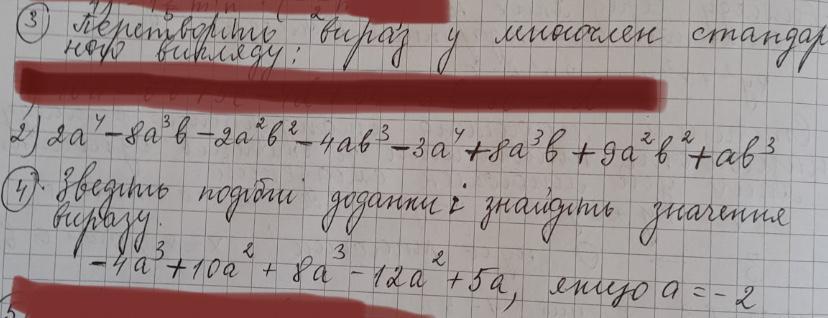 ③ Перетворіть вираз у многочлен стандар
ного вигляду:
2) 2a⁴ - 8a³b - 2a²b² - 4ab³ - 3a⁴ + 8a³b + 9a²b² + ab³
④. Зведіть подібні доданки і знайдіть значення
виразу.
-4a³ + 10a² + 8a³ - 12a² + 5a, якщо a = -2